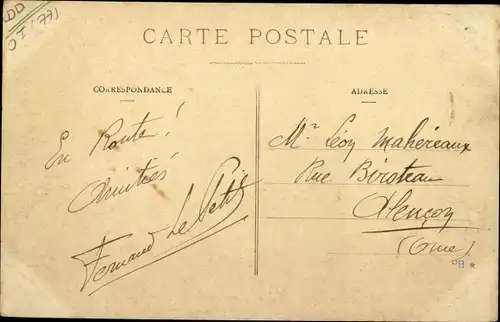 DD
CARTE POSTALE
CORRESPONDANCE
ADRESSE
En Route !
Amitiés
Fernand Le Petit
Mr Léon Mahéreaux
Rue Biroteau
Alençon
(Orne)